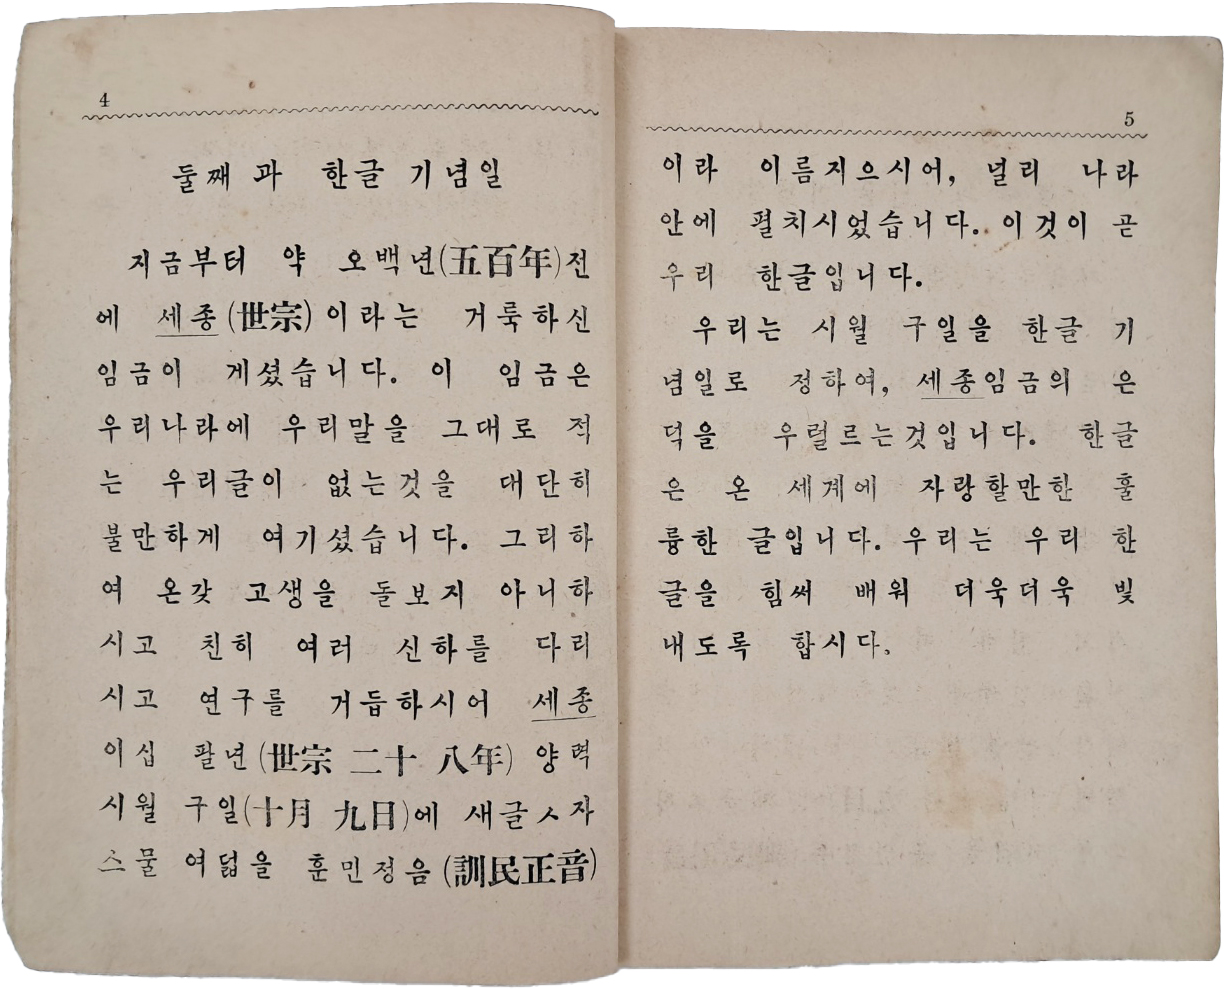 4
둘째 과 한글 기념일
지금부터 약 오백년(五百年)전
에 세종(世宗)이라는 거룩하신
임금이 게셨습니다. 이 임금은
우리나라에 우리말을 그대로 적
는 우리글이 없는것을 대단히
불만하게 여기셨습니다. 그리하
여 온갖 고생을 돌보지 아니하
시고 친히 여러 신하를 다리
시고 연구를 거듭하시어 세종
이십 팔년(世宗 二十 八年) 양력
시월 구일(十月 九日)에 새글ㅅ자
스물 여덟을 훈민정음(訓民正音)
5
이라 이름지으시어, 널리 나라
안에 펼치시었습니다. 이것이 곧
우리 한글입니다.
우리는 시월 구일을 한글 기
념일로 정하여, 세종임금의 은
덕을 우럴르는것입니다. 한글
은 온 세계에 자랑할만한 훌
륭한 글입니다. 우리는 우리 한
글을 힘써 배워 더욱더욱 빛
내도록 합시다.